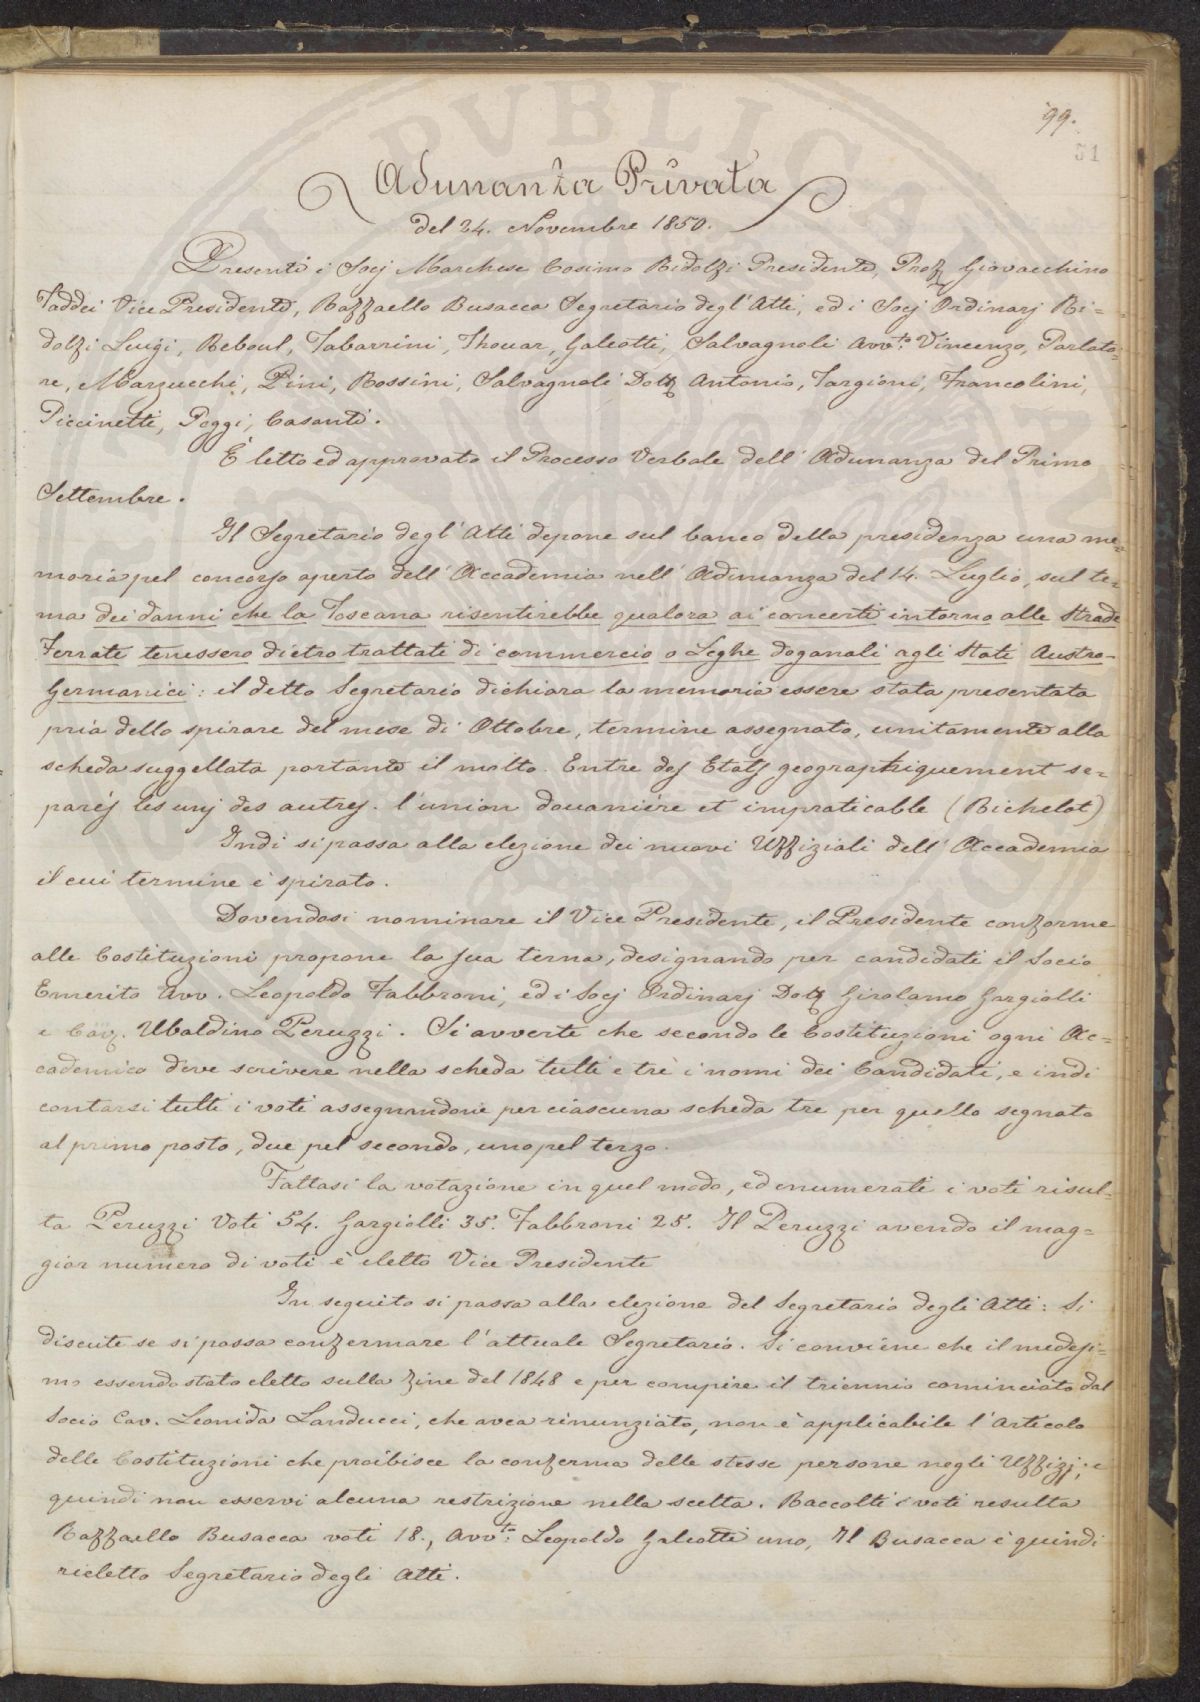 99.
51
Adunanza Privata
del 24. Novembre 1850.
Presenti i Socj Marchese Cosimo Ridolfi Presidente, Prof Giovacchino
Taddei Vice Presidente, Raffaello Busacca Segretario degl' Atti, ed i Socj Ordinarj Ri=
dolfi Luigi, Reboul, Tabarrini, Thouar, Galeotti, Salvagnoli Avv.to Vincenzo, Parlato=
re, Marzucchi, Pini, Rossini, Salvagnoli Dott Antonio, Targioni, Francolini,
Piccinetti, Poggi, Casanti.
È letto ed approvato il Processo Verbale dell' Adunanza del Primo
Settembre.
Il Segretario degl' Atti depone sul banco della presidenza una me=
moria pel concorso aperto dell' Accademia nell' Adunanza del 14. Luglio, sul te=
ma dei danni che la Toscana risentirebbe qualora ai concerti intorno alle Strade
Ferrate tenessero dietro trattati di commercio o Leghe doganali agli Stati Austro-
Germanici: il detto Segretario dichiara la memoria essere stata presentata
pria dello spirare del mese di Ottobre, termine assegnato, unitamente alla
scheda suggellata portante il motto. Entre des Etats geographiquement se=
parés les uns des autres. l'union douaniére et impraticable (Richelot)
Indi si passa alla elezione dei nuovi Uffiziali dell' Accademia
il cui termine è spirato.
Dovendosi nominare il Vice Presidente, il Presidente conforme
alle Costituzioni propone la sua terna, designando per candidati il Socio
Emerito Avv. Leopoldo Fabbroni, ed i Socj Ordinarj Dott Girolamo Gargiolli
e Cav. Ubaldino Peruzzi. Si avverte che secondo le Costituzioni ogni Ac=
cademico deve scrivere nella scheda tutti e tre i nomi dei Candidati, e indi
contarsi tutti i voti assegnandone per ciascuna scheda tre per quello segnato
al primo posto, due pel secondo, uno pel terzo.
Fattasi la votazione in quel modo, ed enumerati i voti risul=
ta Peruzzi Voti 54. Gargiolli 35. Fabbroni 25. Il Peruzzi avendo il mag=
gior numero di voti è eletto Vice Presidente
In seguito si passa alla elezione del Segretario degli Atti: Si
discute se si possa confermare l'attuale Segretario. Si conviene che il medesi=
mo essendo stato eletto sulla fine del 1848 e per compire il triennio cominciato dal
Socio Cav. Leonida Landucci, che avea rinunziato, non è applicabile l'Articolo
delle Costituzioni che proibisce la conferma delle stesse persone negli Uffizj; e
quindi non esservi alcuna restrizione nella scelta. Raccolti i voti resulta
Raffaello Busacca voti 18., Avv.to Leopoldo Galeotti uno, Il Busacca è quindi
rieletto Segretario degli Atti.